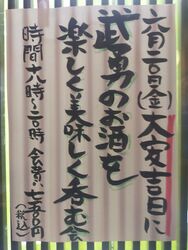 六月二百(金)大安吉日に
武勇のお酒を
楽しく美味しく呑む会
時間十八時〜二十時 会費、七五〇〇円
(税込)